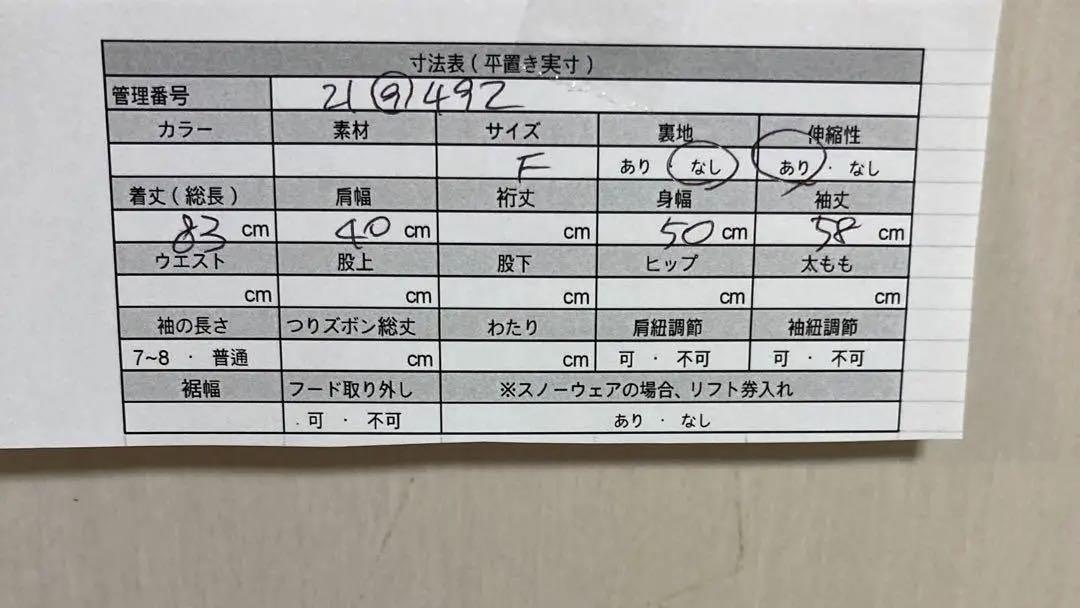 寸法表(平置き実寸)
管理番号 21 9 492
カラー 素材 サイズ 裏地 伸縮性
F あり・なし あり・なし
着丈(総長) 肩幅 裄丈 身幅 袖丈
83 cm 40 cm cm 50 cm 58 cm
ウエスト 股上 股下 ヒップ 太もも
cm cm cm cm cm
袖の長さ つりズボン総丈 わたり 肩紐調節 袖紐調節
7~8 ・ 普通 cm cm 可 ・ 不可 可 ・ 不可
裾幅 フード取り外し ※スノーウェアの場合、リフト券入れ
可 ・ 不可 あり ・ なし